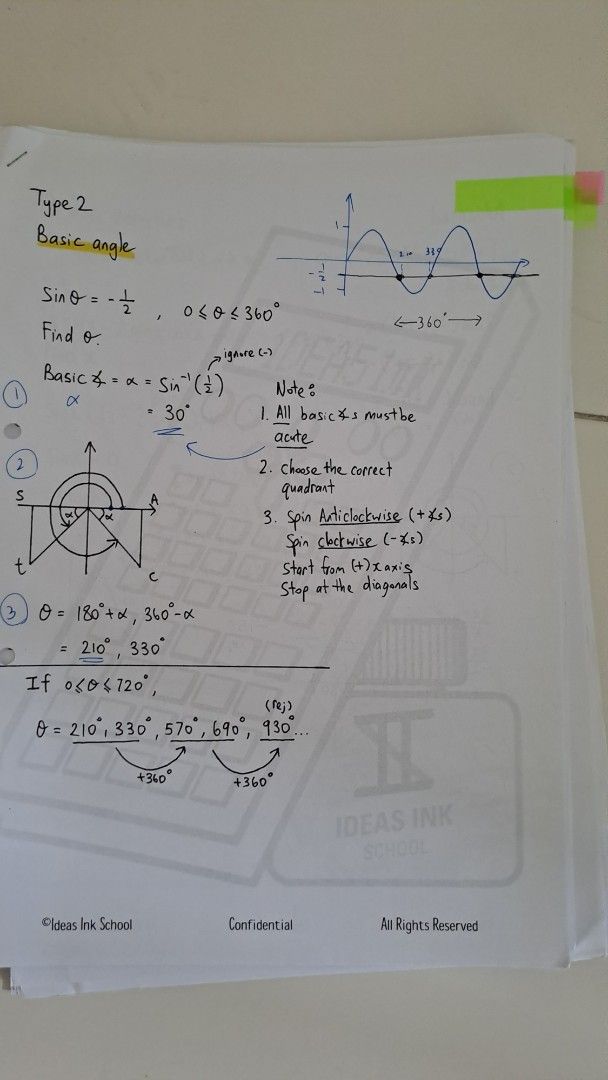 Type 2
Basic angle
1
-1/2
-1
210
330
←360°→
Sinθ = -1/2 , 0 ≤ θ ≤ 360°
Find θ.
ignore (-)
① Basic ∡ = α = Sin⁻¹(1/2)
α
= 30°
Note:
1. All basic ∡s must be
acute
2. Choose the correct
quadrant
3. Spin Anticlockwise (+∡s)
Spin clockwise (-∡s)
Start from (+)x axis
Stop at the diagonals
②
S A
α α
t C
③ θ = 180°+α, 360°-α
= 210°, 330°
If 0≤θ≤720°,
(rej)
θ = 210°, 330°, 570°, 690°, 930°...
+360° +360°
IDEAS INK
SCHOOL
©Ideas Ink School Confidential All Rights Reserved